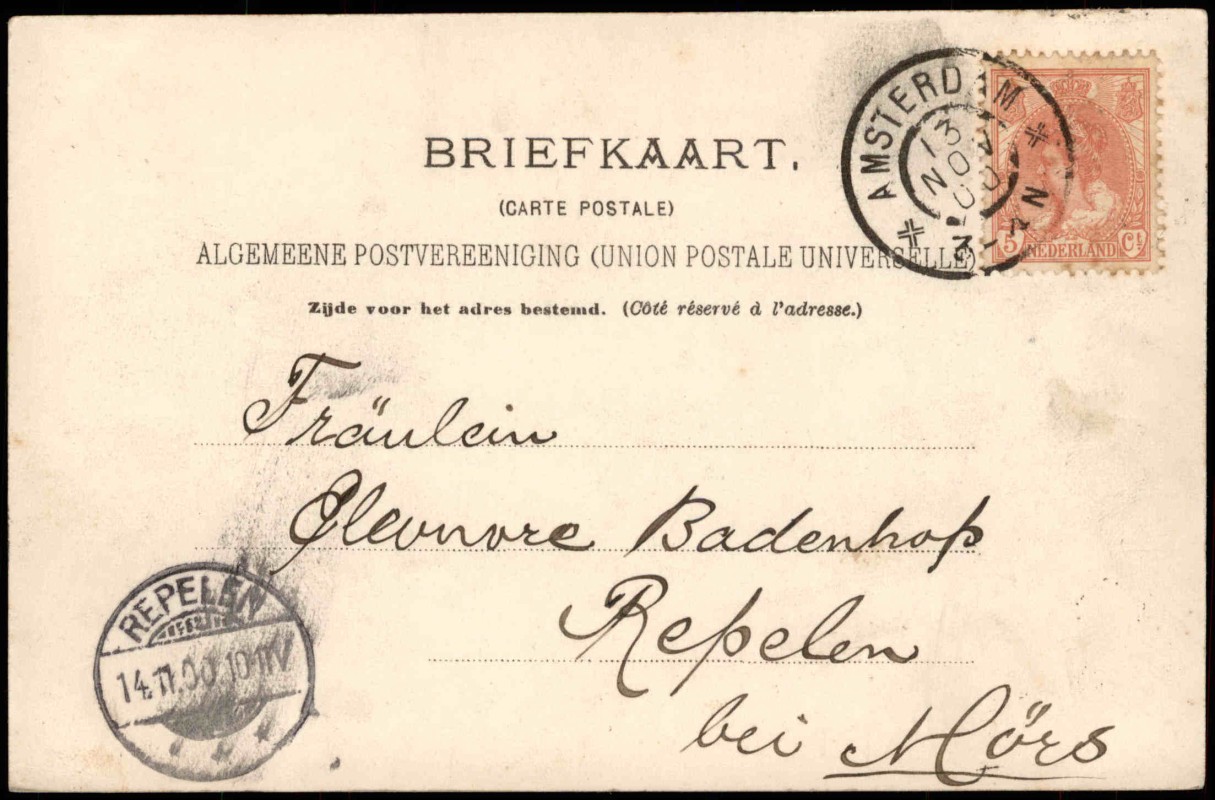 BRIEFKAART.
(CARTE POSTALE)
ALGEMEENE POSTVEREENIGING (UNION POSTALE UNIVERSELLE)
Zijde voor het adres bestemd. (Côté réservé à l'adresse.)
AMSTERDAM
13
NOV
5 NEDERLAND Ct
Fräulein
Eleonore Badenhop
Repelen
bei Mörs
REPELEN
14.11.00.10-11V